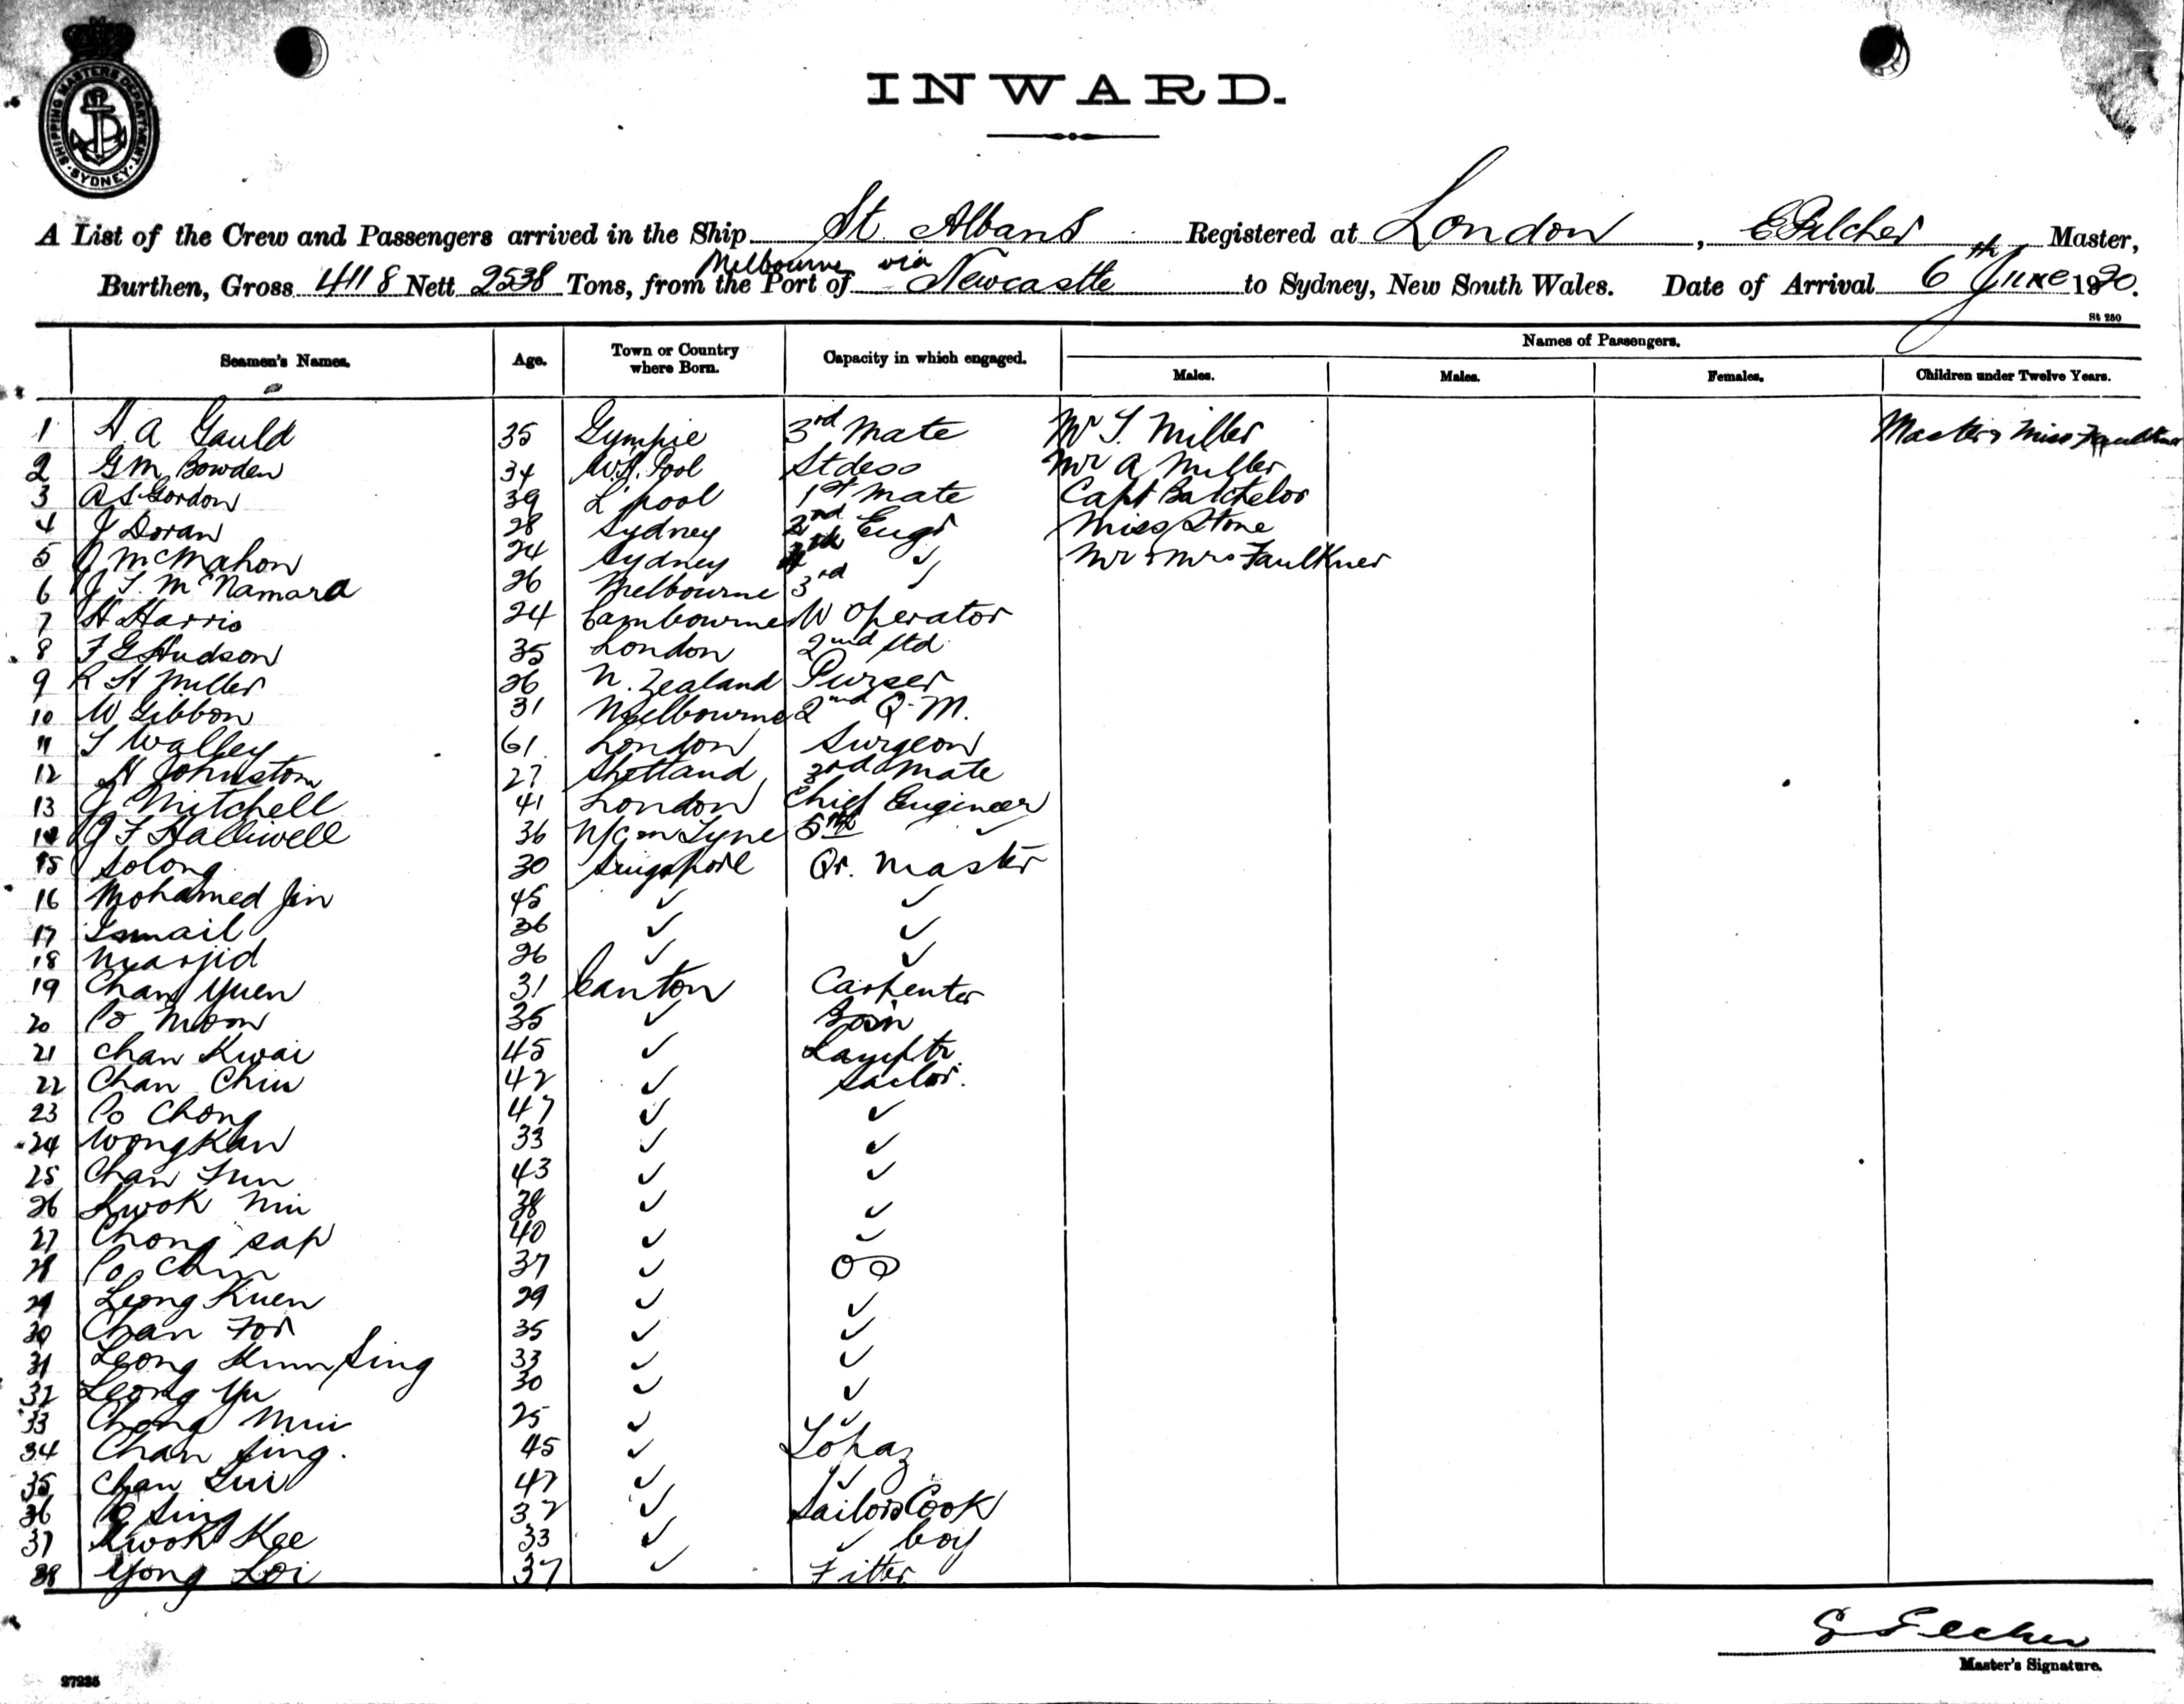 SHIPPING MASTERS DEPARTMENT
SYDNEY
INWARD.
A List of the Crew and Passengers arrived in the Ship St. Albans Registered at London, E Pilcher Master,
Melbourne via
Burthen, Gross 4118 Nett 2538 Tons, from the Port of Newcastle to Sydney, New South Wales. Date of Arrival 6th June 1920.
St 250
Seamen's Names. Age. Town or Country where Born. Capacity in which engaged. Names of Passengers.
Males. Males. Females. Children under Twelve Years.
1 H. A Gauld 35 Gympie 3rd Mate Mr T. Miller Master & Miss Faulkner
2 G M Bowden 34 W.H. Pool Stdess Mr A Miller
3 A S Gordon 39 L'pool 1st Mate Capt Batchelor
4 J Doran 28 Sydney 2nd Engr Miss Stone
5 J McMahon 24 Sydney 4th ✓ Mr & Mrs Faulkner
6 J T. McNamara 26 Melbourne 3rd ✓
7 H Harris 24 Cambourne W Operator
8 F G Hudson 35 London 2nd Std
9 R H Miller 26 N. Zealand Purser
10 W Gibbon 31 Melbourne 2nd Q.M.
11 T Walley 61 London Surgeon
12 H Johnston 27 Shetland 3rd Mate
13 J Mitchell 41 London Chief Engineer
14 J F Halliwell 36 N/C on Tyne 5th ✓
15 Solong 30 Singapore Qr. Master
16 Mohamed Jin 45 ✓ ✓
17 Ismail 36 ✓ ✓
18 Marjid 26 ✓ ✓
19 Chan Yuen 31 Canton Carpenter
20 Po Moon 35 ✓ Bosn
21 Chan Kwai 45 ✓ Lamptr
22 Chan Chiu 42 ✓ Sailor.
23 Po Chong 47 ✓ ✓
24 Wong Kan 33 ✓ ✓
25 Chan Fun 43 ✓ ✓
26 Kwok Min 38 ✓ ✓
27 Chong Sap 40 ✓ ✓
28 Po 37 ✓
29 Leong Kuen 29 ✓ ✓
30 Chan For 35 ✓ ✓
31 Leong Sing 33 ✓ ✓
32 Leong Yu 30 ✓ ✓
33 Chong Mui 25 ✓ ✓
34 Chan Sing. 45 ✓ Topaz
35 Chan Lui 47 ✓ ✓
36 Po Sing 32 ✓ Sailors Cook
37 Kwok Kee 33 ✓ ✓ boy
38 Yong Loi 37 ✓ Fitter
E Pilcher
Master's Signature.
27235